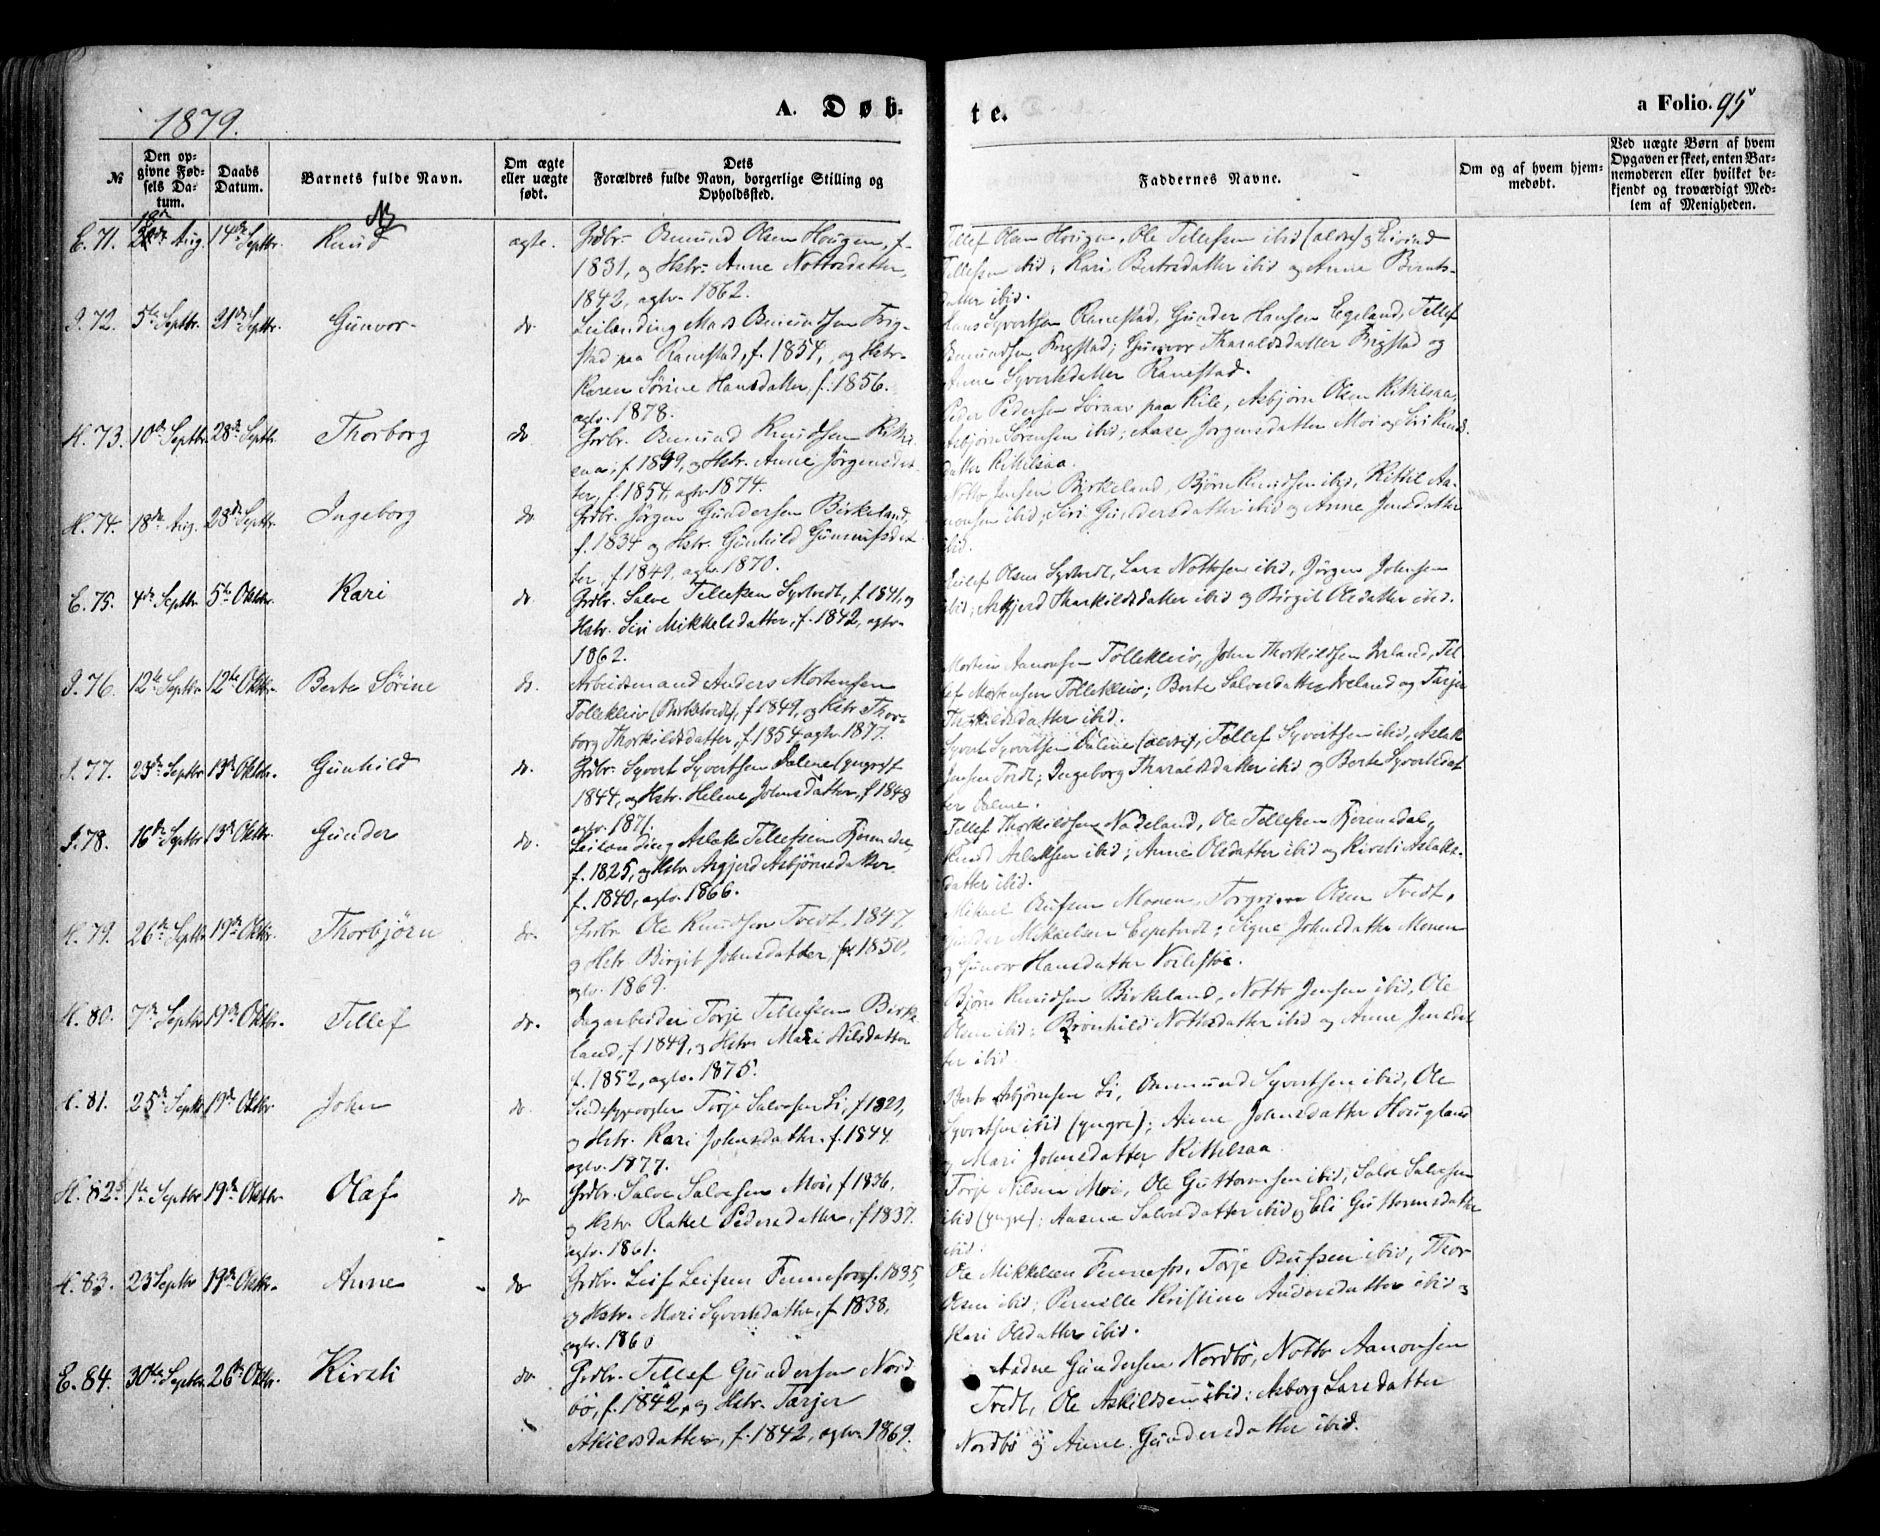 1879.
A. Døb-
te.
a Folio. 95
№
Den op-
givne Fød-
sels Da-
tum.
Daabs
Datum.
Barnets fulde Navn.
Om ægte
eller uægte
født.
Dets
Forældres fulde Navn, borgerlige Stilling og
Opholdssted.
Faddernes Navne.
Om og af hvem hjem-
medøbt.
Ved uægte Børn af hvem
Opgaven er skeet, enten Bar-
nemoderen eller hvilket be-
kjendt og troværdigt Med-
lem af Menigheden.
E. 71. 18de Aug. 14de Septbr. Knud ægte. Grdbr. Osmund Olsen Hougen, f.
1831, og Hstr. Anne Nottosdatter,
1842, agtv. 1862.
Tellef Olsen Hougen, Ole Tellefsen ibid (ældre) og Eivind
Tellefsen ibid; Kari Bertosdatter ibid og Anne Berntsdatter ibid.
I. 72. 5te Septbr. 21de Septbr. Gunvor do. Leilending Mads Osmundsen Frig-
stad paa Ranestad, f. 1854, og Hstr.
Karen Sørine Hansdatter, f. 1856.
agtv. 1878.
Hans Syvertsen Ranestad, Gunder Hansen Egeland, Tellef
Osmundsen Frigstad; Gunvor Tharaldsdatter Frigstad og
Anne Syvertsdatter Ranestad.
H. 73. 10de Septbr. 28de Septbr. Thorborg do Grdbr. Osmund Knudsen Kittel-
saa, f. 1849, og Hstr. Anne Jørgensdat
ter, f. 1854, agtv. 1874.
Peder Pedersen Søraas paa Kile, Asbjørn Olsen Kittilsaa,
Asbjørn Sørensen ibid; Aase Jørgensdatter Moi og Siri Knuds-
datter Kittilsaa.
H. 74. 18de Aug. 28de Septbr. Ingeborg do. Grdbr. Jørgen Gundersen Birkeland,
f. 1834 og Hstr. Gunhild Gunnufsdat
ter, f. 1849, agtv. 1870.
Notto Jensen Birkeland, Bjørn Knudsen ibid, Kittil Aa-
nonsen ibid; Siri Gundersdatter ibid og Anne Jensdatter
ibid.
E. 75. 4de Septbr 5te Oktbr. Kari do. Grdbr. Salve Tellefsen Systvedt, f. 1841, og
Hstr. Siri Mikkelsdatter, f. 1842, agtv.
1862.
Olsen Systvedt, Lars Nottosen ibid, Jørgen Johnsen
ibid; Asgjerd Tharkildsdatter ibid og Birgit Olsdatter ibid.
I. 76. 12te Septbr. 12te Oktbr. Berte Sørine do. Arbeidsmand Anders Mortensen
Tolleklev (Birketvedt), f. 1849, og Hstr. Thor-
borg Thorkildsdatter, f. 1854 agtv. 1877.
Morten Aanonsen Tolleklev, John Thorkildsen Iveland, Tel
lef Mortensen Tolleklev; Berte Salvesdatter Iveland og Tarjer
Thorkildsdatter ibid.
I. 77. 23de Septbr 13de Oktbr. Gunhild do. Grdbr. Syvert Syvertsen Dalene (yngre) f.
1844, og Hstr. Helene Johnsdatter, f 1848
agtv. 1871.
Syvert Syvertsen Dalene (ældre), Tellef Syvertsen ibid, Aslak
Jensen Tvedt; Ingeborg Tharaldsdatter ibid og Berte Syvertsdat
ter Dalene.
I. 78. 16de Septbr 13de Oktbr. Gunder do. Leilending Aslak Tellefsen
f. 1825, og Hstr. Asgjerd Asbjørnsdatter
f. 1840, agtv. 1866.
Tellef Thorkildsen Nadeland, Ole Tellefsen
Knud Aslaksen ibid; Anne Olsdatter ibid og Kirsti Aslaks-
datter ibid.
H. 79. 26de Septbr 19de Oktbr. Thorbjørn do. Grdbr. Ole Knudsen Tvedt, 1847
og Hstr. Birgit Johnsdatter, 1850,
agtv. 1869.
Mikael Osufsen Monen, Torgrim Olsen Tvedt,
Gunder Mikaelsen Espetvedt; Signe Johnsdatter Monen
og Gunvor Hansdatter
H. 80. 7de Septbr 19de Oktbr. Tellef do. Dagarbeider Torje Tellefsen Birke
land, f. 1849, og Hstr. Mari Nilsdatter
f. 1852, agtv. 1875.
Bjørn Knudsen Birkeland, Notto Jensen ibid, Ole
Olsen ibid; Brønhild Nottosdatter ibid og Anne Jensdat
ter ibid.
H. 81. 25de Septbr 19de Oktbr John do. Torje Salvesen Li, f 1821,
og Hstr. Kari Johnsdatter, f. 1844.
agtv. 1877.
Berto Asbjørnsen Li, Osmund Syvertsen ibid, Ole
Syvertsen ibid (yngre); Anne Johnsdatter Hougland
og Mari Johnsdatter Kittilsaa.
H. 82. 1te Septbr 19de Oktbr Olaf do Grdbr. Salve Salvesen Moi, f 1836,
og Hstr. Rakel Pedersdatter, f 1837.
agtv. 1861.
Torje Nilsen Moi, Ole Guttormsen ibid, Salve Salvesen
ibid (yngre); Aasne Salvesdatter ibid og Eli Guttormsdatter
ibid.
H. 83. 23 Septbr 19de Oktbr. Anne do Grdbr. Leif Leifsen Fennefos, f. 1835,
og Hstr. Mari Syvertsdatter, f. 1838,
agtv. 1860
Ole Mikkelsen Fennefos, Torje Osufsen ibid, Thor
Olsen ibid; Pernille Kristine Andersdatter ibid og
Kari Olsdatter ibid.
E. 84. 30te Septbr. 26de Oktbr. Kirsti do Grdbr. Tellef Gundersen Nord
bø, f. 1842, og Hstr. Tarjer
Askildsdatter, f. 1842, agtv. 1869.
Aadne Gundersen Nordbø, Notto Aanonsen
Tvedt, Ole Askildsen ibid; Asborg Larsdatter
Nordbø og Anne Gundersdatter ibid.